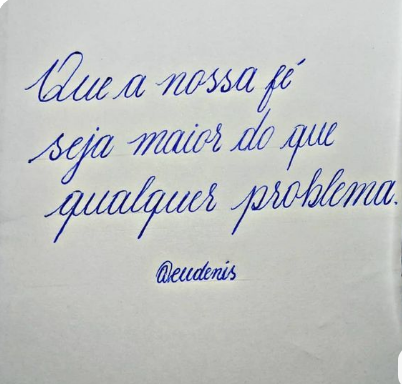 Que a nossa fé
seja maior do que
qualquer problema.
@eudenis